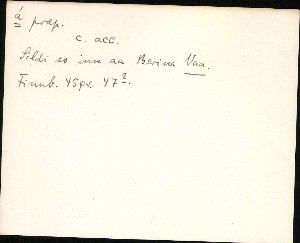 á præp.
c. acc.
Seldi so inn aa Berina Vaa.
Finnb. 45pr. 47².